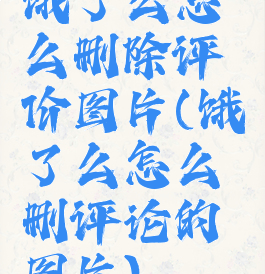 饿了么怎
么删除评
价图片(饿
了么怎么
删评论的
图片)